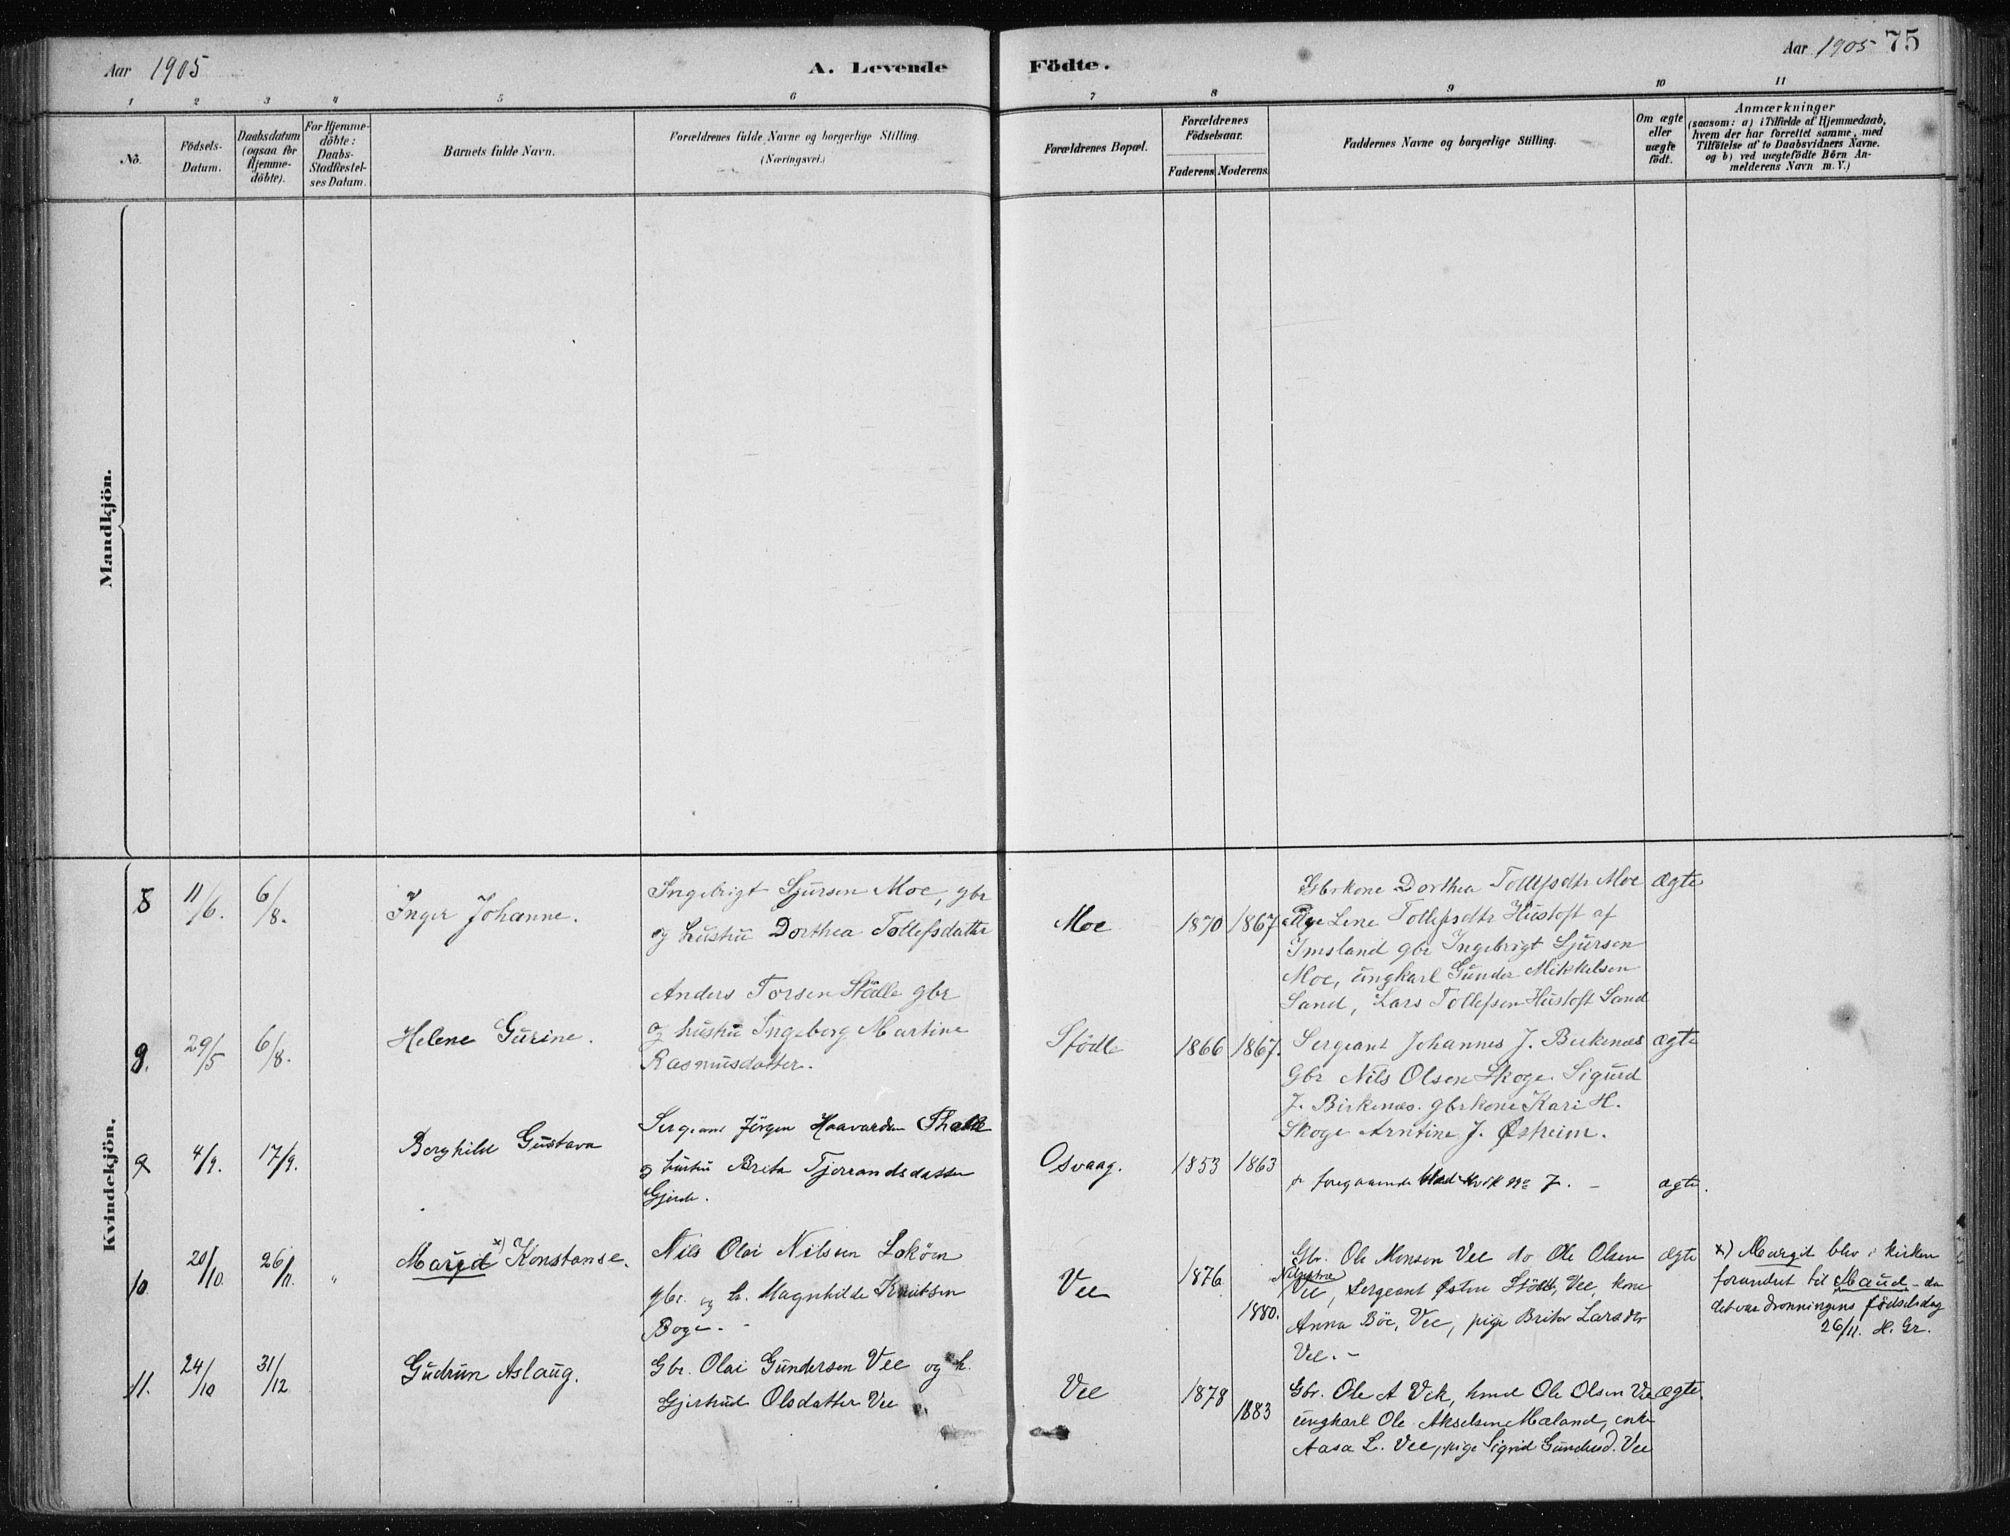 Aar 1905
A. Levende Födte.
Aar 1905 75
1 2 3 4 5 6 7 8 9 10 11
No.
Födsels-Datum.
Daabsdatum (ogsaa för Hjemme-döbte).
For Hjemme-döbte: Daabs-Stadfæstel-ses Datum.
Barnets fulde Navn.
Forældrenes fulde Navne og borgerlige Stilling. (Næringsvei.)
Forældrenes Bopæl.
Forældrenes Födselsaar.
Faderens. Moderens.
Faddernes Navne og borgerlige Stilling.
Om ægte eller uægte födt.
Anmærkninger
(saasom: a) i Tilfælde af Hjemmedaab,
hvem der har forrettet samme, med
Tilföielse af to Daabsvidners Navne.
og b) ved uægtefödte Börn An-
melderens Navn m. V.)
Mandkjön.
Kvindekjön.
8 11/6. 6/8. Inger Johanne.
Ingebrigt Sjursen Moe, gbr
og hustru Dorthea Tollefsdatter
Moe 1870 1867
Gbrkone Dorthea Tollefsdtr Moe
Pige Line Tollefsdtr Hustoft af
Imsland gbr Ingebrigt Sjursen
Moe, ungkarl Gunder Mikkelsen
Sand, Lars Tollefsen Hustoft Sand
ægte
9. 29/5 6/8. Helene Gurine.
Anders Torsen Stödle gbr
og hustru Ingeborg Martine
Rasmusdatter.
Stödle 1866 1867.
Sergeant Johannes J. Birkenæs
Gbr Nils Olsen Skoge. Sigurd
J. Birkenæs. gbrkone Kari H.
Skoge Arntine J. Østreim.
ægte
9 4/9. 17/9. Borghild Gustava
Sergeant Jörgen Haavardsen
og hustru Brita Tjerrandsdatter
Gjerde.
Osvaag. 1853 1863
foregaaende blad kvik No 7. -
ægte.
10. 20/10. 26/11. " Margid x) Konstanse.
Nils Olai Nilsen Lokön
gbr. og h. Magnhilde Knutsen
Boge. -
Vee 1876 1880.
Gbr. Ole Monsen Vee do Ole Olsen
Vee, Sergeant Østen Stödle, Vee, kone
Anna Böe, Vee, pige Brita Larsdtr
Vee. -
ægte
x) Margit blev i kirken
forandret til Maud - da
det var dronningens födselsdag
26/11. H. Gr.
11. 24/10 31/12 Gudrun Aslaug.
Gbr. Olai Gundersen Vee og h.
Gjertrud Olsdatter Vee
Vee 1878 1883
Gbr. Ole A Vek, hmd Ole Olsen Vee
ungkarl Ole Akselsen Mæland, enke
Aasa L. Vee, pige Sigrid Gundersd. Vee
ægte.